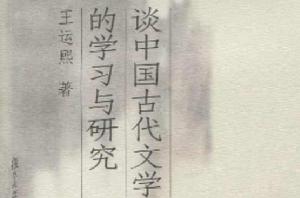 谈中国古代文学
的学习与研究
王运熙 著